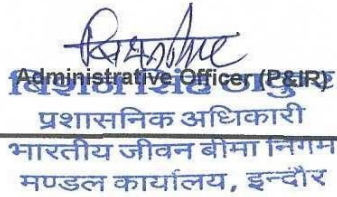 Administrative Officer (P&IR)
बिशन सिंह ठाकुर
प्रशासनिक अधिकारी
भारतीय जीवन बीमा निगम
मण्डल कार्यालय, इन्दौर